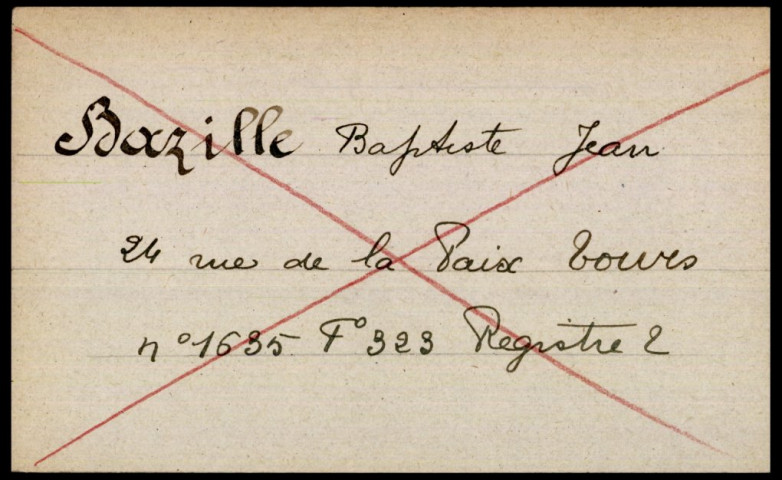 Bazille Baptiste Jean
24 rue de la Paix Tours
n° 1635 F° 323 Registre 2